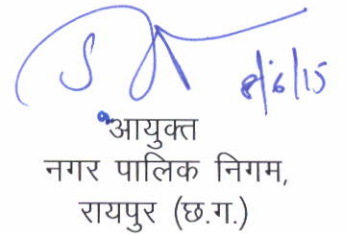 8/6/15
आयुक्त
नगर पालिक निगम,
रायपुर (छ.ग.)